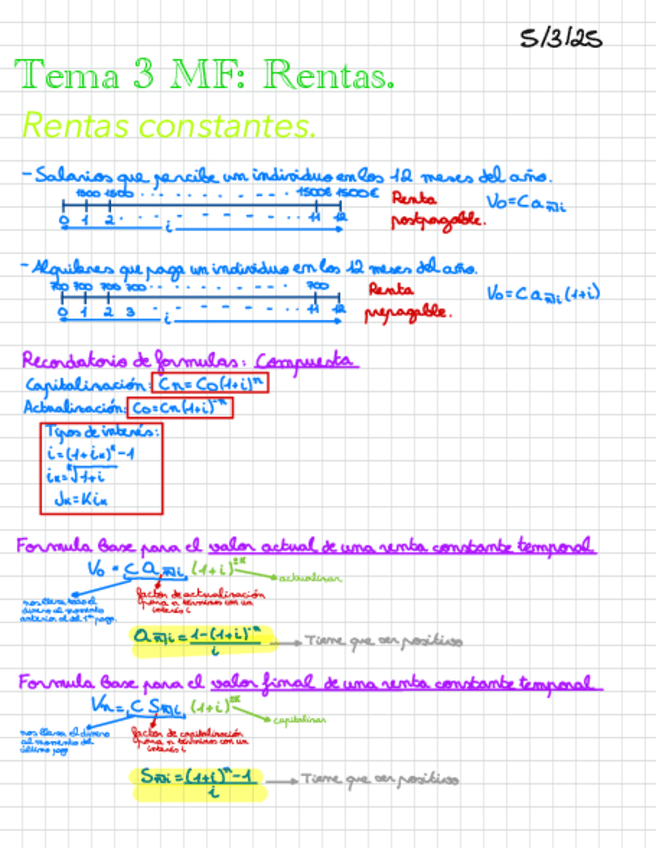 5/3/25
Tema 3 MF: Rentas.
Rentas constantes.
- Salarios que percibe un individuo en los 12 meses del año.
1500 1500 . . . . . - - - . . 1500€ 1500€
Renta postpagable.
Vo=C a n̅|i
0 1 2 . . . - - - - - . . . 11 12
i
- Alquileres que paga un individuo en los 12 meses del año.
700 700 700 700 . . . - - - . . 700
Renta prepagable.
Vo=C a n̅|i (1+i)
0 1 2 3 . . - - - - - . . . 11 12
i
Recordatorio de formulas: Compuesta
Capitalización: Cn=Co(1+i)ⁿ
Actualización: Co=Cn(1+i)⁻ⁿ
Tipos de interés:
i=(1+iₖ)ᵏ-1
iₖ=ᵏ√1+i
Jₖ=Kiₖ
Formula Base para el valor actual de una renta constante temporal
Vo = C a n̅|i (1+i)
actualizar
nos lleva todo el dinero al momento anterior al del 1er pago.
factor de actualización para n términos con un interés i
a n̅|i = 1-(1+i)⁻ⁿ / i
Tiene que ser positivo
Formula Base para el valor final de una renta constante temporal
Vn = C S n̅|i (1+i)
capitalizar
nos lleva el dinero al momento del último pago
factor de capitalización para n términos con un interés i
S n̅|i = (1+i)ⁿ-1 / i
Tiene que ser positivo